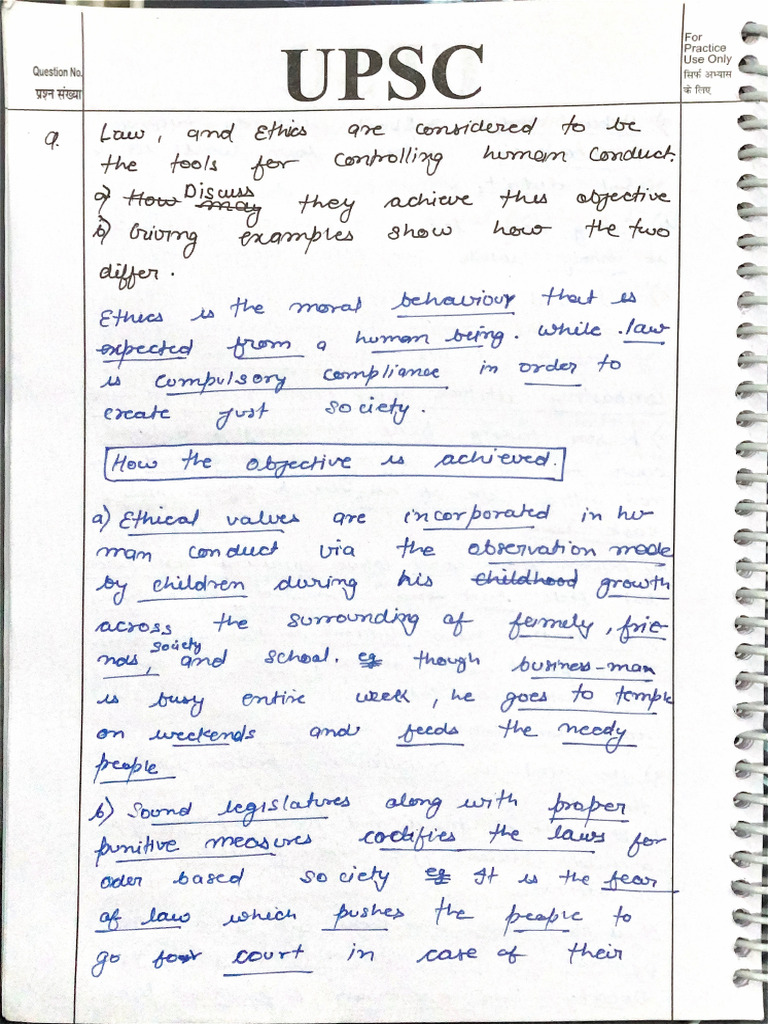 Question No.
प्रश्न संख्या
UPSC
For
Practice
Use Only
सिर्फ अभ्यास
के लिए
Q. Law, and Ethics are considered to be
the tools for controlling human conduct.
a) How Discuss may they achieve this objective
b) Giving examples show how the two
differ.
Ethics is the moral behaviour that is
expected from a human being. while law
is compulsory compliance in order to
create just society.
How the objective is achieved.
a) Ethical values are incorporated in hu
man conduct via the observation made
by children during his childhood growth
across the surrounding of family, frie
nds, society and school. eg though business-man
is busy entire week, he goes to temple
on weekends and feeds the needy
people
b) Sound legislatures along with proper
punitive measures codifies the laws for
oder based society eg It is the fear
of law which pushes the people to
go for court in case of their